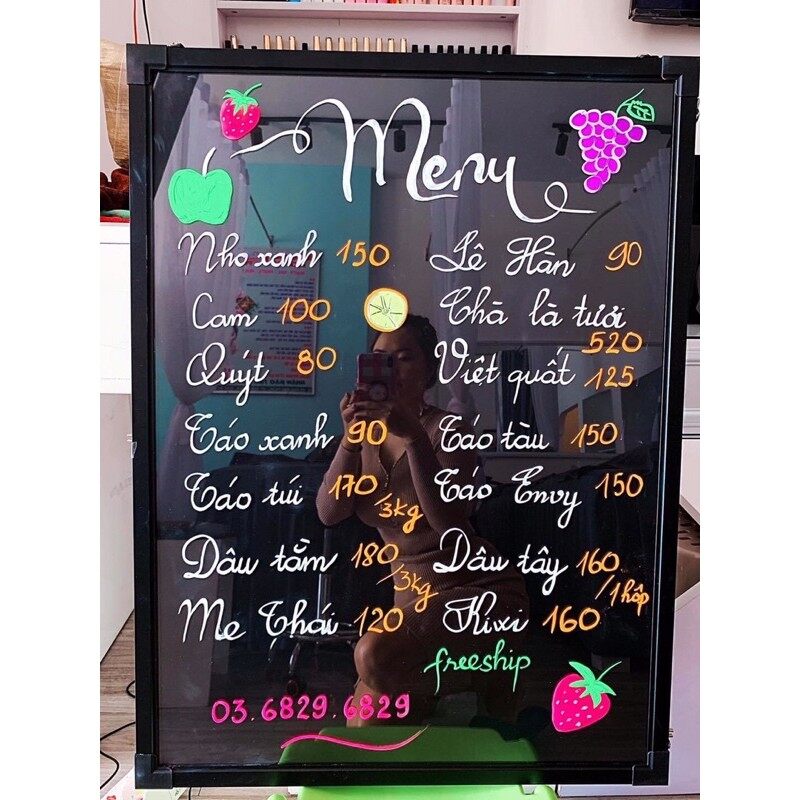 Menu
Nho xanh 150
Cam 100
Quýt 80
Táo xanh 90
Táo túi 170/3kg
Dâu tằm 180/3kg
Me Thái 120
Lê Hàn 90
Chà là tươi 520
Việt quất 125
Táo tàu 150
Táo Envy 150
Dâu tây 160/1hôp
Kixi 160
freeship
03.6829.6829